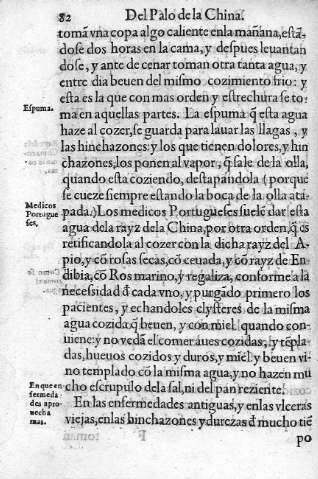 82 Del Palo de la China.
tomã vna copa algo caliente en la mañana, estã-
dose dos horas en la cama, y despues leuantan
dose, y ante de cenar toman otra tanta agua, y
entre dia beuen del mismo cozimiento frio: y
esta es la que con mas orden y estrechura se to-
Espuma.
ma en aquellas partes. La espuma q̃ esta agua
haze al cozer, se guarda para lauar las llagas, y
las hinchazones: y los que tienen dolores, y hin
chazones, los ponen al vapor, q̃ sale de la olla,
quando esta coziendo, destapandola (porque
se cueze siempre estando la boca de la olla ata-
Medicos
Portugue
ses,
pada.) Los medicos Portugueses suelẽ dar esta
agua dela rayz dela China, por otra orden, q̃ es
retificandola al cozer con la dicha rayz del A-
pio, y cõ rosas secas, cõ ceuada, y cõ rayz de En
dibia, cõ Ros marino, y regaliza, conforme a la
necessidad d̃ cada vno, y purgado primero los
pacientes, y echandoles clysteres de la misma
agua cozida q̃ beuen, y con miel quando con-
uiene: y no vedã el comer aues cozidas, y tẽpla
das, hueuos cozidos y duros, y miel y beuen vi-
no templado cõ la misma agua, y no hazen mu
cho escrupulo dela sal, ni del pan reziente.
En que en
fermeda
des apro-
uecha
mas.
En las enfermedades antiguas, y enlas vlceras
viejas, enlas hinchazones y durezas d̃ mucho tiẽ
po